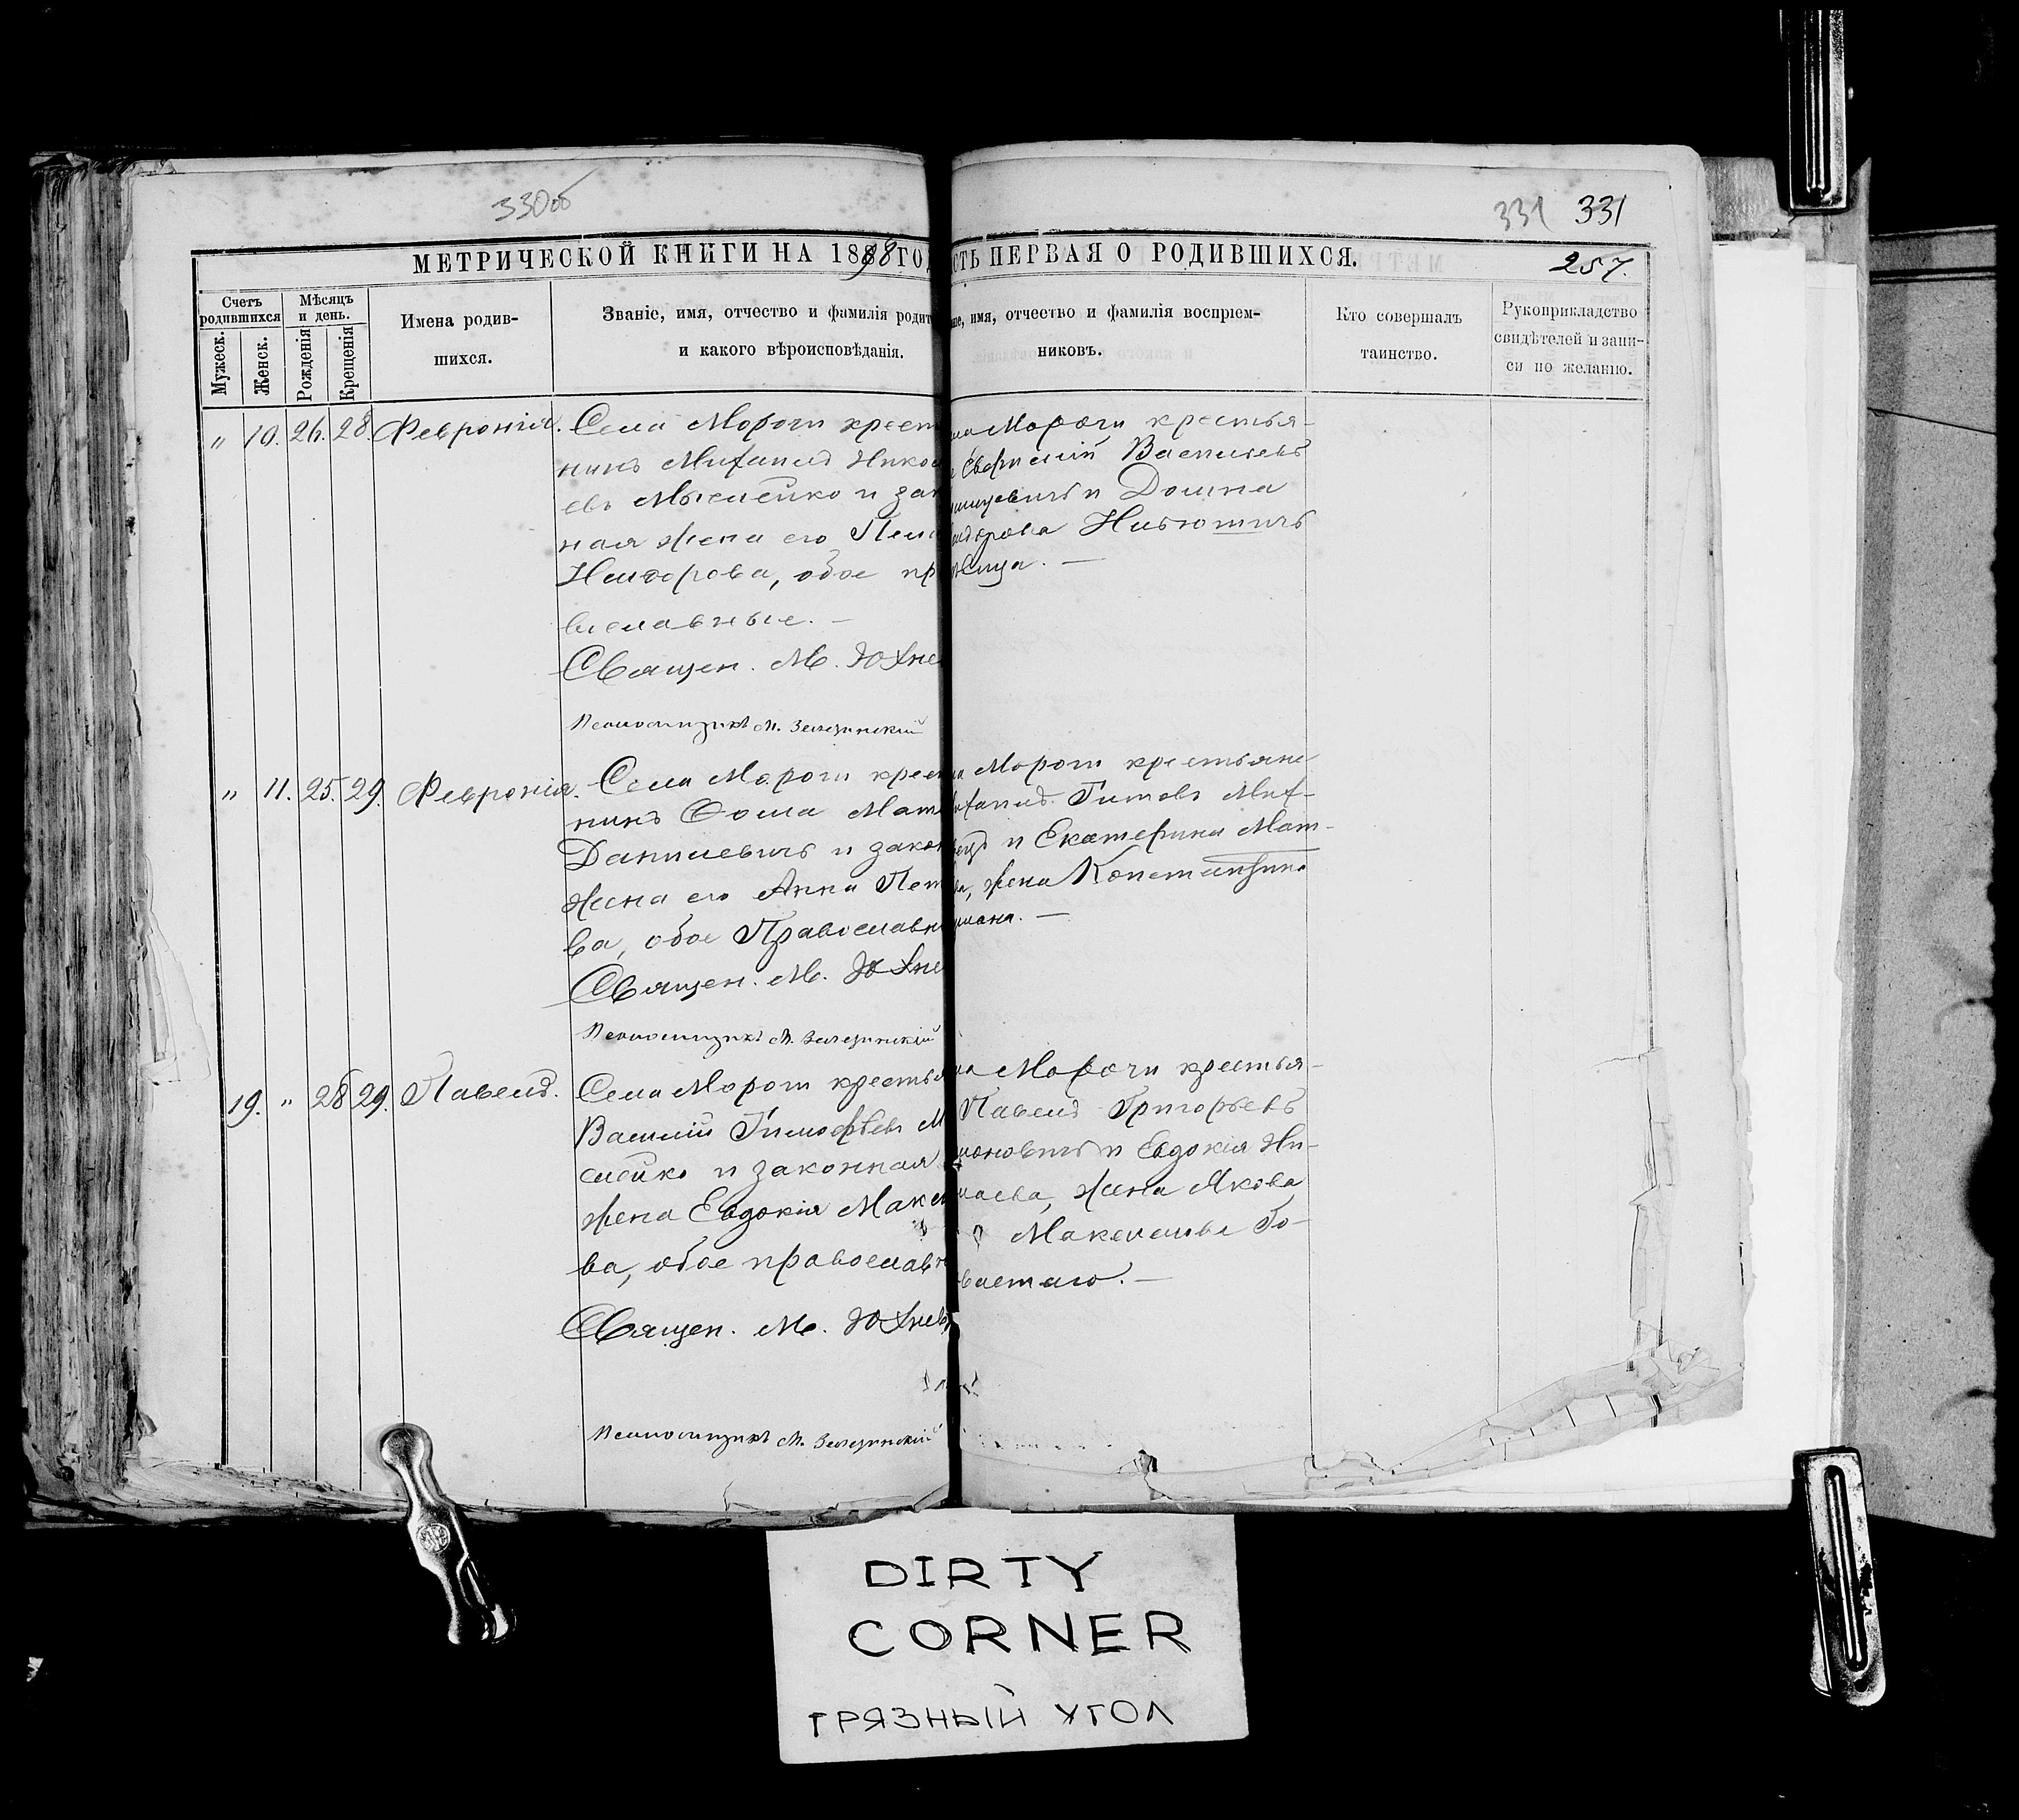 330об
331 331
МЕТРИЧЕСКОЙ КНИГИ НА 1898 ГОД
СТЬ ПЕРВАЯ О РОДИВШИХСЯ.
257.
Счетъ родившихся
Мужеск.
Женск.
Мѣсяцъ и день.
Рожденія
Крещенія
Имена родив-
шихся.
Званіе, имя, отчество и фамилія родит
и какого вѣроисповѣданія.
ніе, имя, отчество и фамилія воспріем-
никовъ.
Кто совершалъ
таинство.
Рукоприкладство
свидѣтелей и запи-
си по желанію.
" 10. 26. 28. Февронія.
Села Морочи крест
нинъ Михаилъ Никол
евъ Мысле­йко и зак
ная жена его Пела
обое пр
вославные. —
Священ. М. Юхне
Псаломщикъ М.
ла Морочи крестья-
Васильевъ
и Домна
дорова
ѣвица. —
" 11. 25. 29. Февронія.
Села Морочи крест
нинъ Ѳома Мат
Данилевичъ и закон
жена его Анна Пет
ва, обое Православн
Священ. М. Юхне
Псаломщикъ М.
ла Морочи крестьяне
ихаилъ Титовъ Мих-
и Екатерина Мат-
ва, жена Константина
19. " 28 29. Павелъ.
Села Морочи крестья
Василій Тимофѣевъ М
слейко и законная
жена Евдокія Макси
ва, обое православн
Священ. М. Юхнев
Псаломщикъ М.
ла Морочи крестья-
Павелъ Григорьевъ
моновичъ и Евдокія Ни-
лаева, жена Якова
Го-
DIRTY
CORNER
ГРЯЗНЫЙ УГОЛ